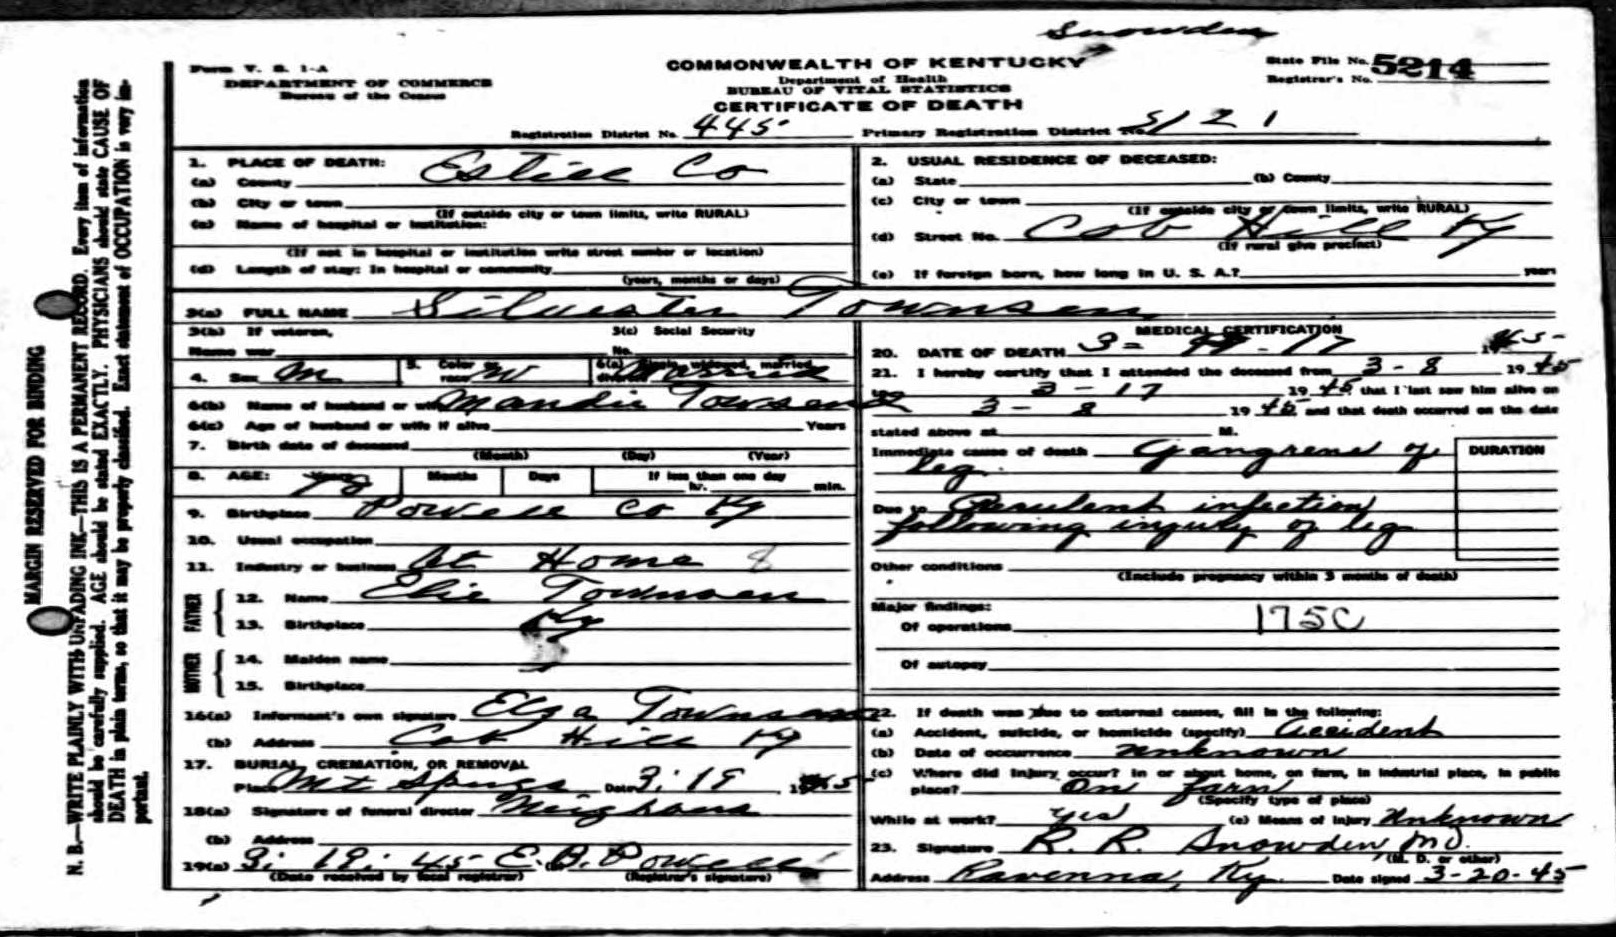 Snowden
Form V. S. 1-A
DEPARTMENT OF COMMERCE
Bureau of the Census
COMMONWEALTH OF KENTUCKY
Department of Health
BUREAU OF VITAL STATISTICS
CERTIFICATE OF DEATH
State File No. 5214
Registrar's No.
Registration District No. 445 Primary Registration District No. 5121
MARGIN RESERVED FOR BINDING
N. B.—WRITE PLAINLY WITH UNFADING INK—THIS IS A PERMANENT RECORD. Every item of information
should be carefully supplied. AGE should be stated EXACTLY. PHYSICIANS should state CAUSE OF
DEATH in plain terms, so that it may be properly classified. Exact statement of OCCUPATION is very im-
portant.
1. PLACE OF DEATH:
(a) County Estill Co
(b) City or town
(If outside city or town limits, write RURAL)
(c) Name of hospital or institution:
(If not in hospital or institution write street number or location)
(d) Length of stay: In hospital or community
(years, months or days)
2. USUAL RESIDENCE OF DECEASED:
(a) State (b) County
(c) City or town
(If outside city or town limits, write RURAL)
(d) Street No. Cob Hill Ky
(If rural give precinct)
(e) If foreign born, how long in U. S. A.? years
3(a) FULL NAME Silvester Townsen
3(b) If veteran,
Name war
3(c) Social Security
No.
4. Sex M 5. Color or race W 6(a) Single, widowed, married, divorced
6(b) Name of husband or wife Mandie Townsend
6(c) Age of husband or wife if alive Years
7. Birth date of deceased
(Month) (Day) (Year)
8. AGE: Years 78 Months Days If less than one day
hr. min.
9. Birthplace Powell Co Ky
10. Usual occupation
11. Industry or business At Home 8
FATHER
12. Name Elie Townsen
13. Birthplace Ky
MOTHER
14. Maiden name
15. Birthplace
16(a) Informant's own signature Elza Townsen
(b) Address Cob Hill Ky
17. BURIAL, CREMATION, OR REMOVAL
Place Mt Spngs Date 3-19 1945
18(a) Signature of funeral director Neighbors
(b) Address
19(a) 3-19-45 (b) E. B. Powell
(Date received by local registrar) (Registrar's signature)
MEDICAL CERTIFICATION
20. DATE OF DEATH 3- 17 1945
21. I hereby certify that I attended the deceased from 3-8 1945
to 3-17 1945 that I last saw him alive on
3-8 1945 and that death occurred on the date
stated above at M.
Immediate cause of death Gangrene of
leg.
DURATION
Due to Purulent infection
following injury of leg
Other conditions
(Include pregnancy within 3 months of death)
Major findings:
Of operations 175C
Of autopsy
22. If death was due to external causes, fill in the following:
(a) Accident, suicide, or homicide (specify) Accident
(b) Date of occurrence Unknown
(c) Where did injury occur? In or about home, on farm, in industrial place, in public
place? On farm
(Specify type of place)
While at work? Yes (e) Means of injury Unknown
23. Signature R. R. Snowden, MD.
(M. D. or other)
Address Ravenna, Ky. Date signed 3-20-45